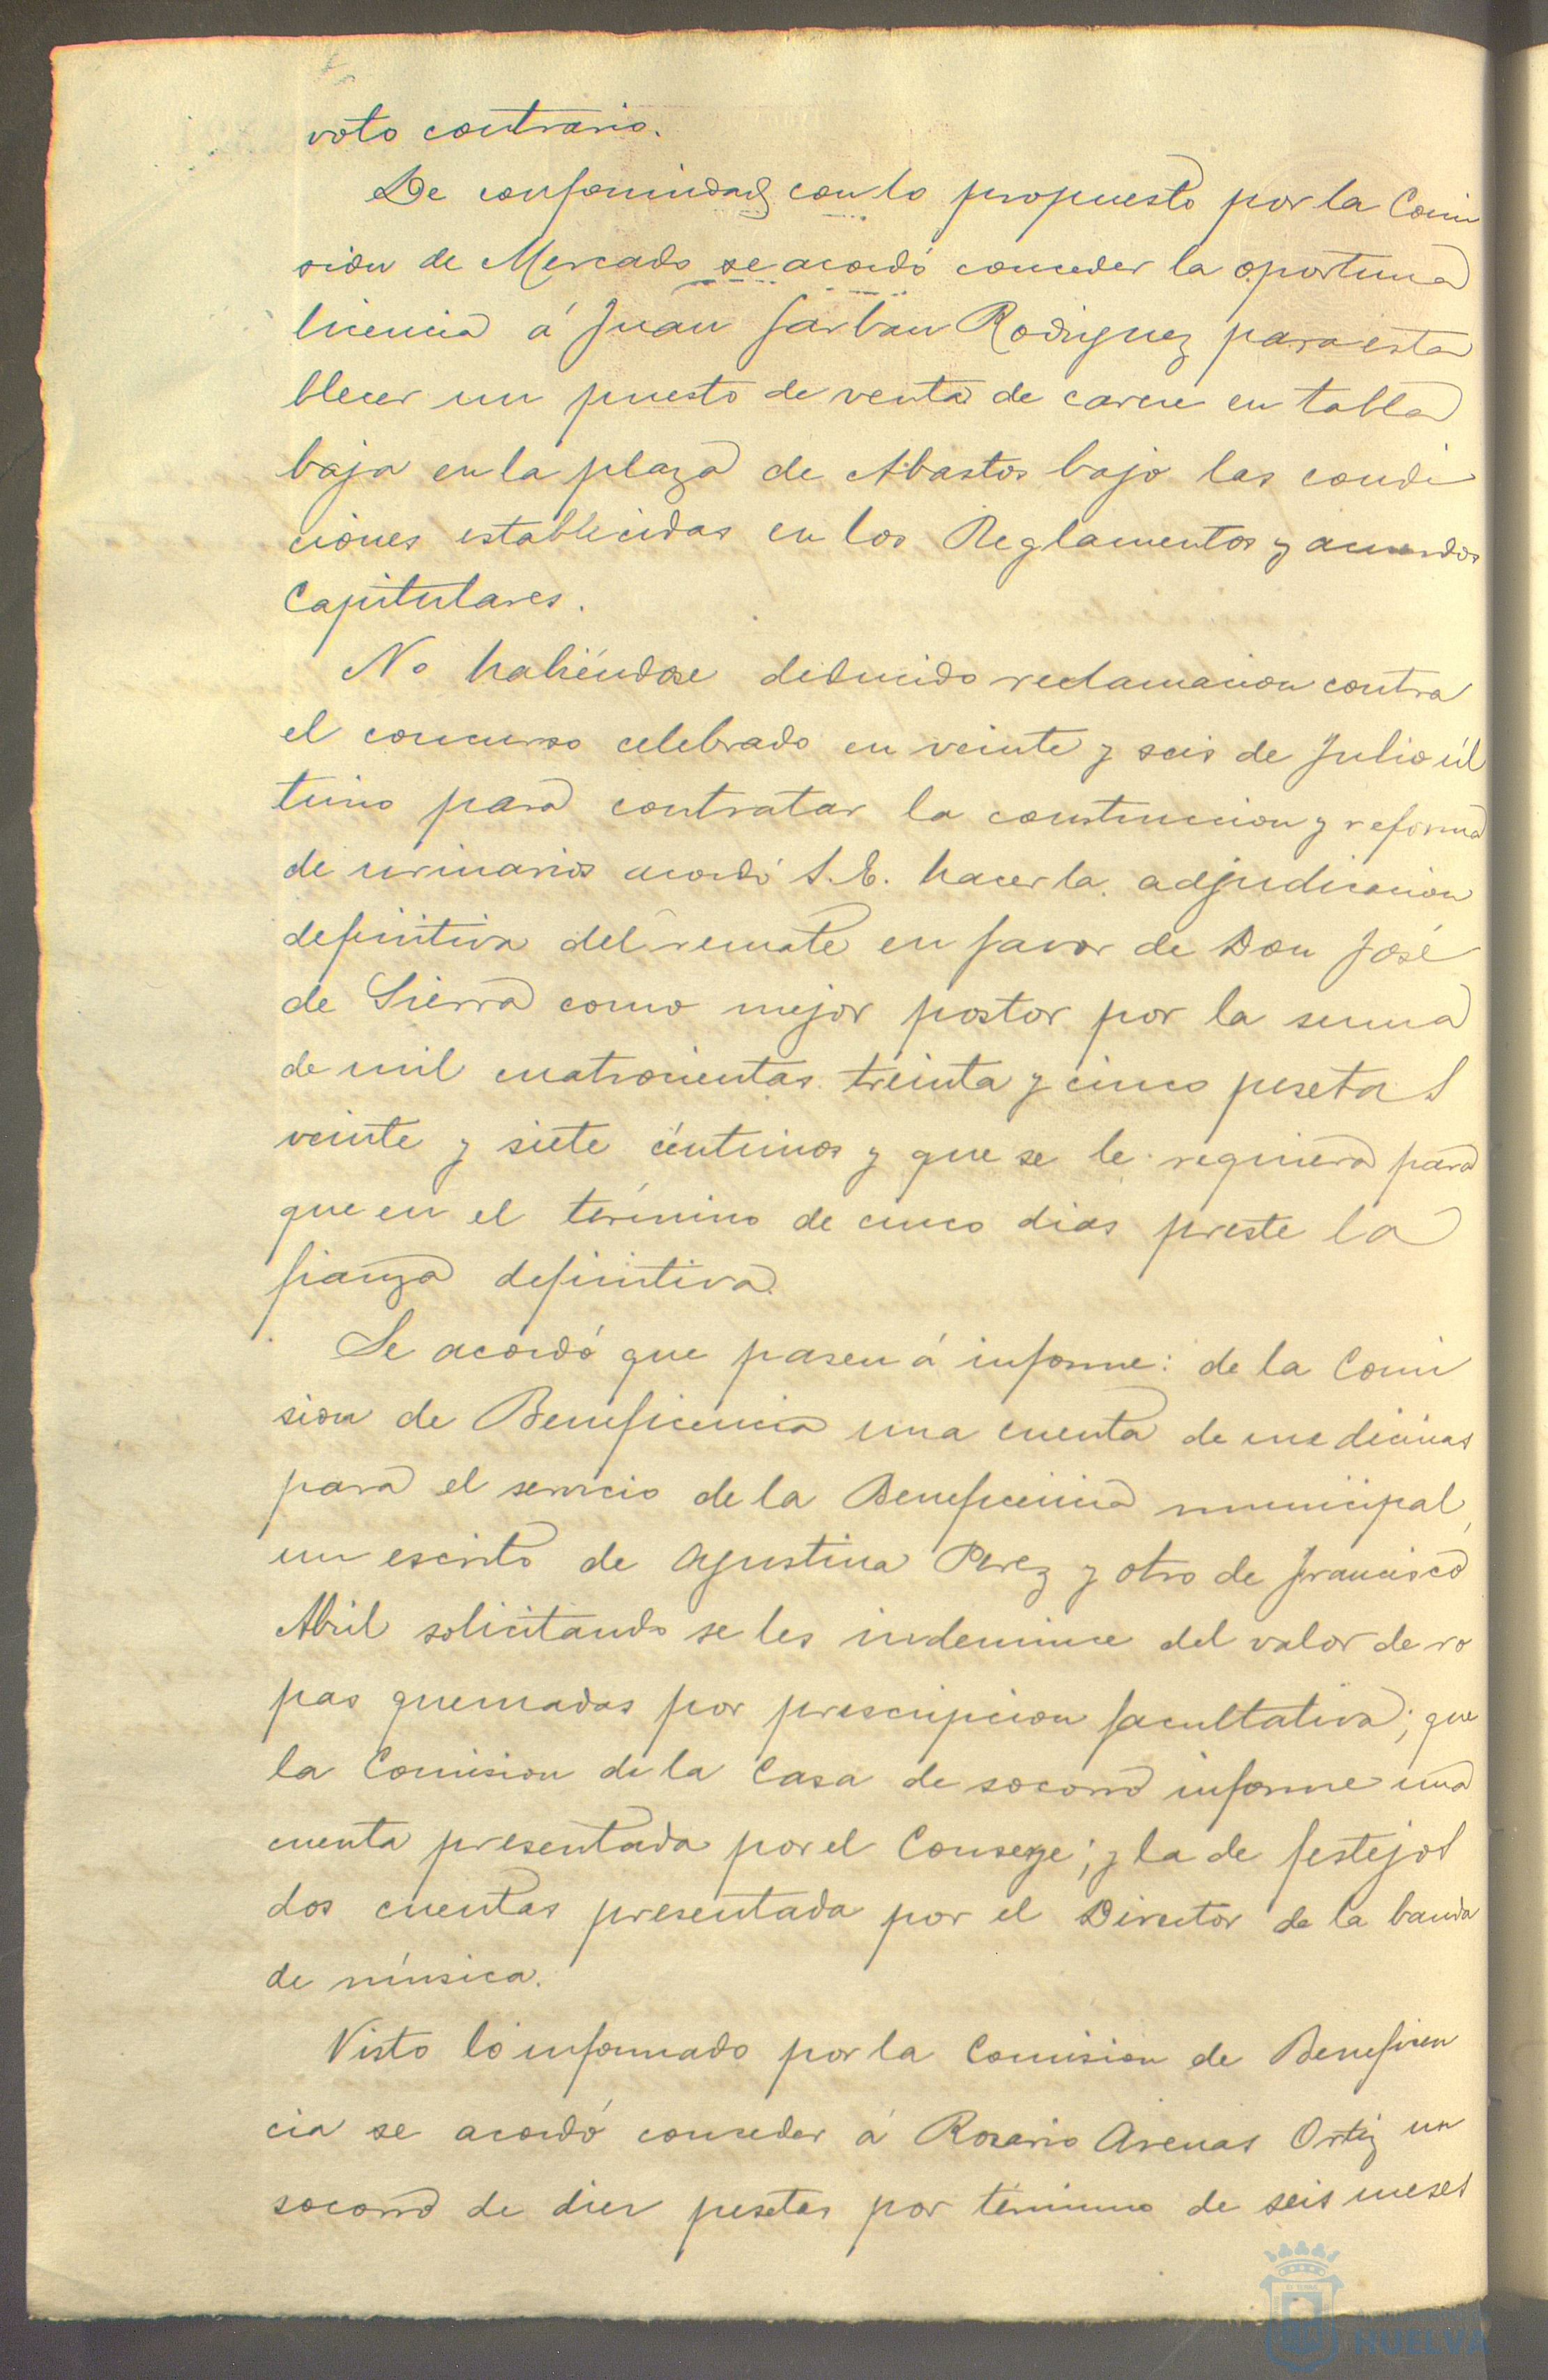 voto contrario.
De conformidad con lo propuesto por la Comi
sion de Mercado se acordó conceder la oportuna
licencia á Juan Rodriguez para esta
blecer un puesto de venta de carne en tabla
baja en la plaza de Abastos bajo las condi
ciones establecidas en los Reglamentos y acuerdos
Capitulares.
No habiéndose deducido reclamacion contra
el concurso celebrado en veinte y seis de Julio úl
timo para contratar la construccion y reforma
de urinarios acordó S.E. hacer la adjudicacion
definitiva del remate en favor de Don José
de Sierra como mejor postor por la suma
de mil cuatrocientas treinta y cinco pesetas
veinte y siete céntimos y que se le requiera para
que en el término de cinco dias preste la
fianza definitiva.
Se acordó que pasen á informe: de la Comi
sion de Beneficencia una cuenta de medicinas
para el servicio de la Beneficencia municipal,
un escrito de Agustina Perez y otro de Francisco
Abril solicitando se les indemnice del valor de ro
pas quemadas por prescripcion facultativa; que
la Comision de la Casa de socorro informe una
cuenta presentada por el Conserge; y la de festejos
dos cuentas presentada por el Director de la banda
de música.
Visto lo informado por la Comision de Beneficen
cia se acordó conceder á Rosario Arenas Ortiz un
socorro de diez pesetas por término de seis meses
HUELVA